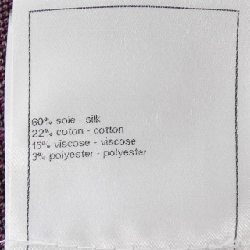 60% soie - silk
22% coton - cotton
15% viscose - viscose
3% polyester - polyester